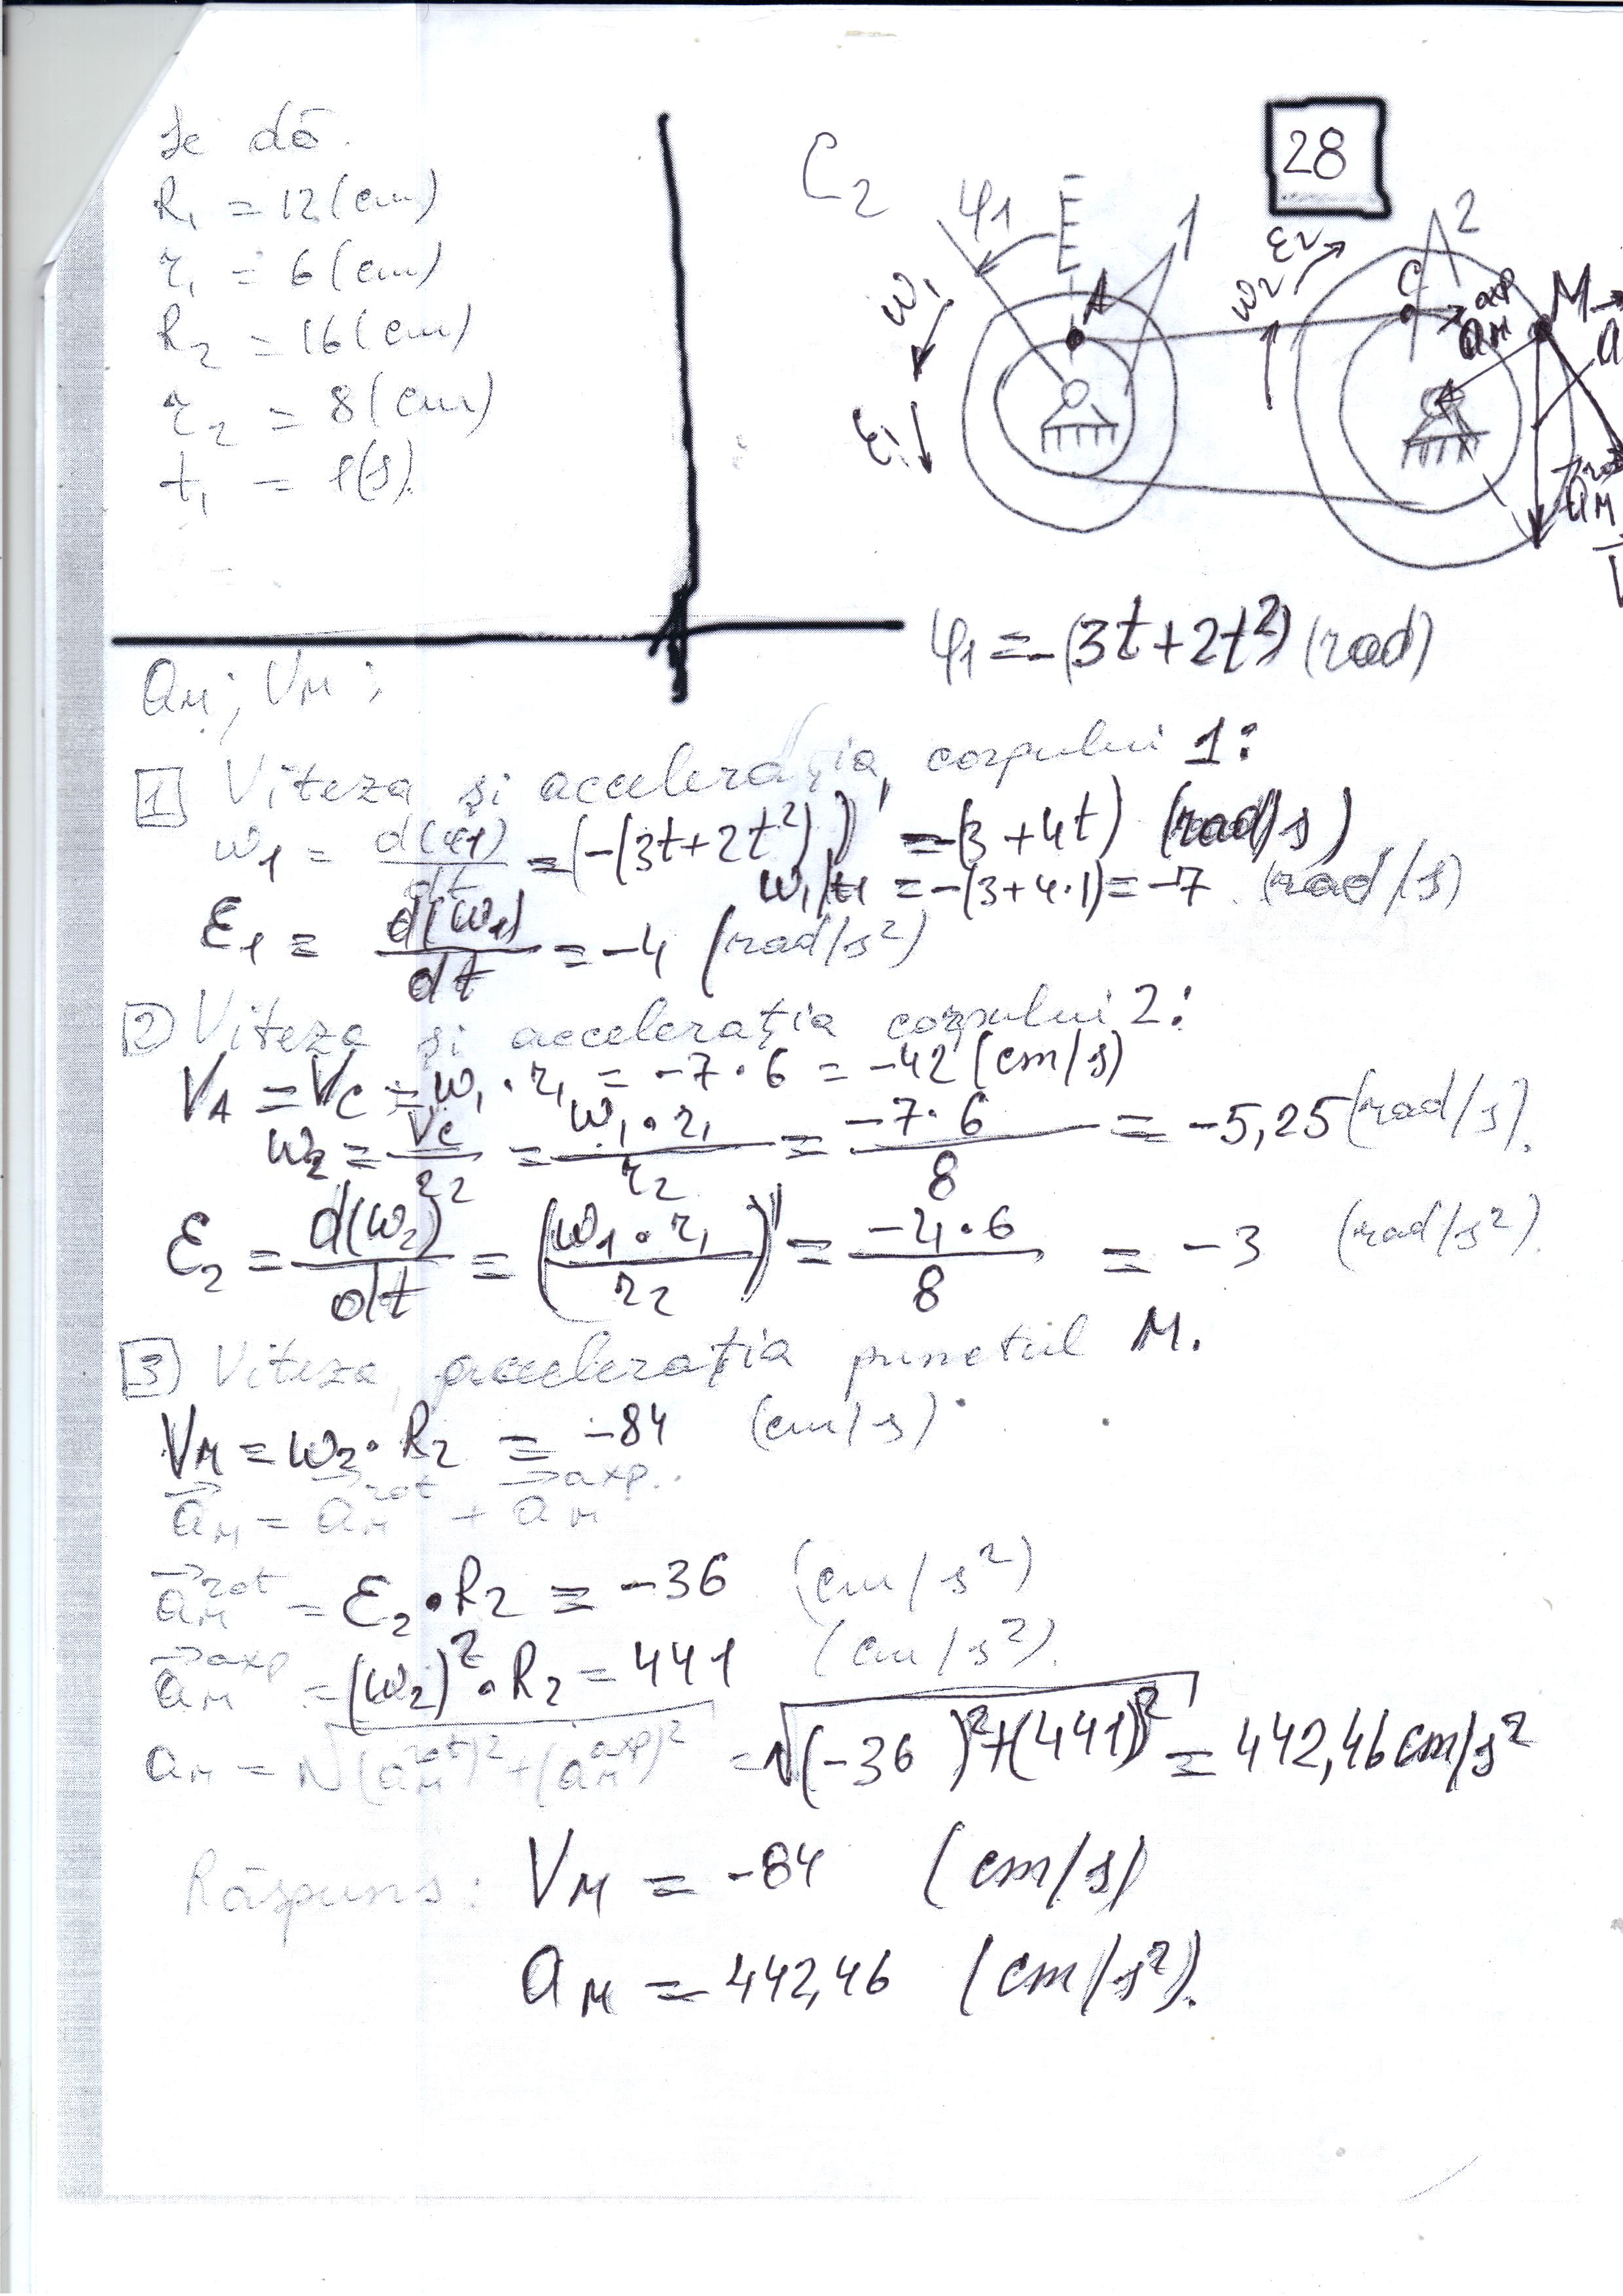 Se dă.
R₁ = 12 (cm)
r₁ = 6 (cm)
R₂ = 16 (cm)
r₂ = 8 (cm)
t₁ = 1(s).
C₂
28
φ1
E
1
A
ω₁
ε₁
ω₂
ε₂
2
C
a_M^axp
M
a
a_M^rot
V
φ1 = -(3t+2t²) (rad)
a_M; V_M;
1 Viteza și accelerația corpului 1:
ω1 = d(φ1)/dt = (-(3t+2t²))' = -(3+4t) (rad/s)
ω₁/t1 = -(3+4·1) = -7 (rad/s)
ε1 = d(ω1)/dt = -4 (rad/s²)
2 Viteza și accelerația corpului 2:
V_A = V_C = ω₁ · r₁ = -7·6 = -42 (cm/s)
ω₂ = V_C/r₂ = ω₁·r₁/r₂ = -7·6/8 = -5,25 (rad/s).
ε₂ = d(ω₂)/dt = (ω1·r₁/r₂)' = -4·6/8 = -3 (rad/s²).
3 Viteza, accelerația punctul M.
V_M = ω₂·R₂ = -84 (cm/s)
a⃗_M = a⃗_M^rot + a⃗_M^axp.
a⃗_M^rot = ε₂·R₂ = -36 (cm/s²)
a⃗_M^axp = (ω₂)²·R₂ = 441 (cm/s²).
a_M = √((a_M^rot)²+(a_M^axp)²) = √((-36)²+(441)²) = 442,46 cm/s²
Răspuns: V_M = -84 (cm/s)
a_M = 442,46 (cm/s²).